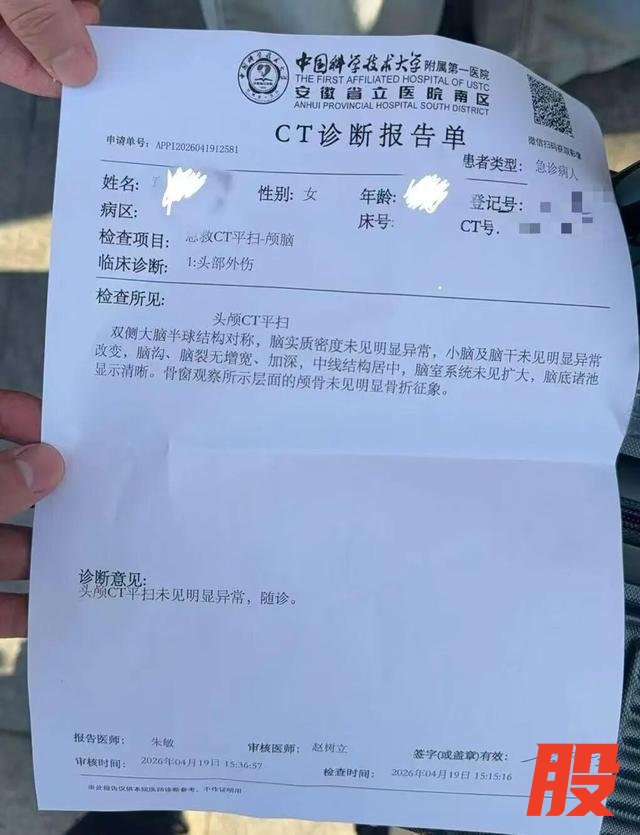 中国科学技术大学附属第一医院
THE FIRST AFFILIATED HOSPITAL OF USTC
安徽省立医院南区
ANHUI PROVINCIAL HOSPITAL SOUTH DISTRICT
微信扫码获取影像
CT诊断报告单
申请单号: APPI2026041912581
患者类型: 急诊病人
姓名: 性别: 女 年龄: 登记号:
病区: 床号: CT号.
检查项目: 急救CT平扫-颅脑
临床诊断: 1:头部外伤
检查所见:
头颅CT平扫
双侧大脑半球结构对称，脑实质密度未见明显异常，小脑及脑干未见明显异常
改变，脑沟、脑裂无增宽、加深，中线结构居中，脑室系统未见扩大，脑底诸池
显示清晰。骨窗观察所示层面的颅骨未见明显骨折征象。
诊断意见:
头颅CT平扫未见明显异常，随诊。
报告医师: 朱敏 审核医师: 赵树立 签字(或盖章)有效:
审核时间: 2026年04月19日 15:36:57 检查时间: 2026年04月19日 15:15:16
※此报告仅供本院医师诊断参考，不作证明用
股